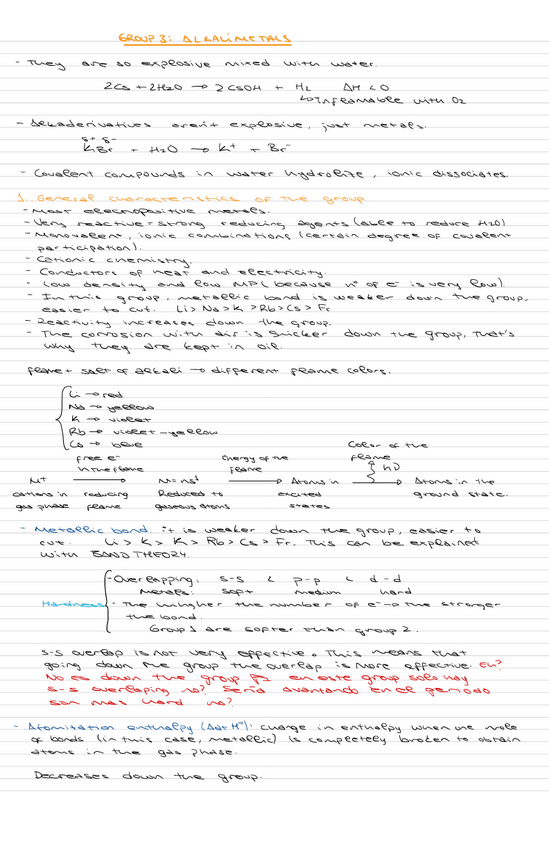 GROUP 3: ALKALIMETALS
- They are so explosive mixed with water.
2Cs + 2H2O → 2CsOH + H2 ΔH < 0
↳ Inflamable with O2
- Alkaderivatives aren't explosive, just metals.
δ+ δ-
KBr + H2O → K+ + Br-
- Covalent compounds in water hydrolize, ionic dissociates.
1. General characteristics of the group
- Most electropositive metals.
- Very reactive = strong reducing agents (able to reduce H2O)
- Monovalent, ionic combinations (certain degree of covalent
participation).
- Cationic chemistry.
- Conductors of heat and electricity.
- Low density and low MP (because nº of e- is very low).
- In this group, metallic bond is weaker down the group,
easier to cut. Li > Na > K > Rb > Cs > Fr
- Reactivity increases down the group.
- The corrosion with air is quicker down the group, that's
why they are kept in oil.
flame + salt of alkali → different flame colors.
Li → red
Na → yellow
K → violet
Rb → violet-yellow
Cs → blue
Color of the
free e- Energy of the flame
in the flame flame hν
M+ → M = ns1 → Atoms in → Atoms in the
cations in reducing Reduced to excited ground state.
gas phase flame gaseous atoms states
- Metallic bond: it is weaker down the group, easier to
cut. Li > K > K > Rb > Cs > Fr. This can be explained
with BAND THEORY.
- Overlapping: s-s < p-p < d-d
Metals: soft medium hard
Hardness - The higher the number of e- → the stronger
the bond.
Group 1 are softer than group 2.
s-s overlap is not very effective. This means that
going down the group the overlap is more effective. Eh?
No es down the group pq en este group solo hay
s-s overlaping no? Sería avantando en el periodo
son mas hard no?
- Atomisation enthalpy (ΔatHº): change in enthalpy when one mole
of bonds (in this case, metallic) is completely broken to obtain
atoms in the gas phase.
Decreases down the group.